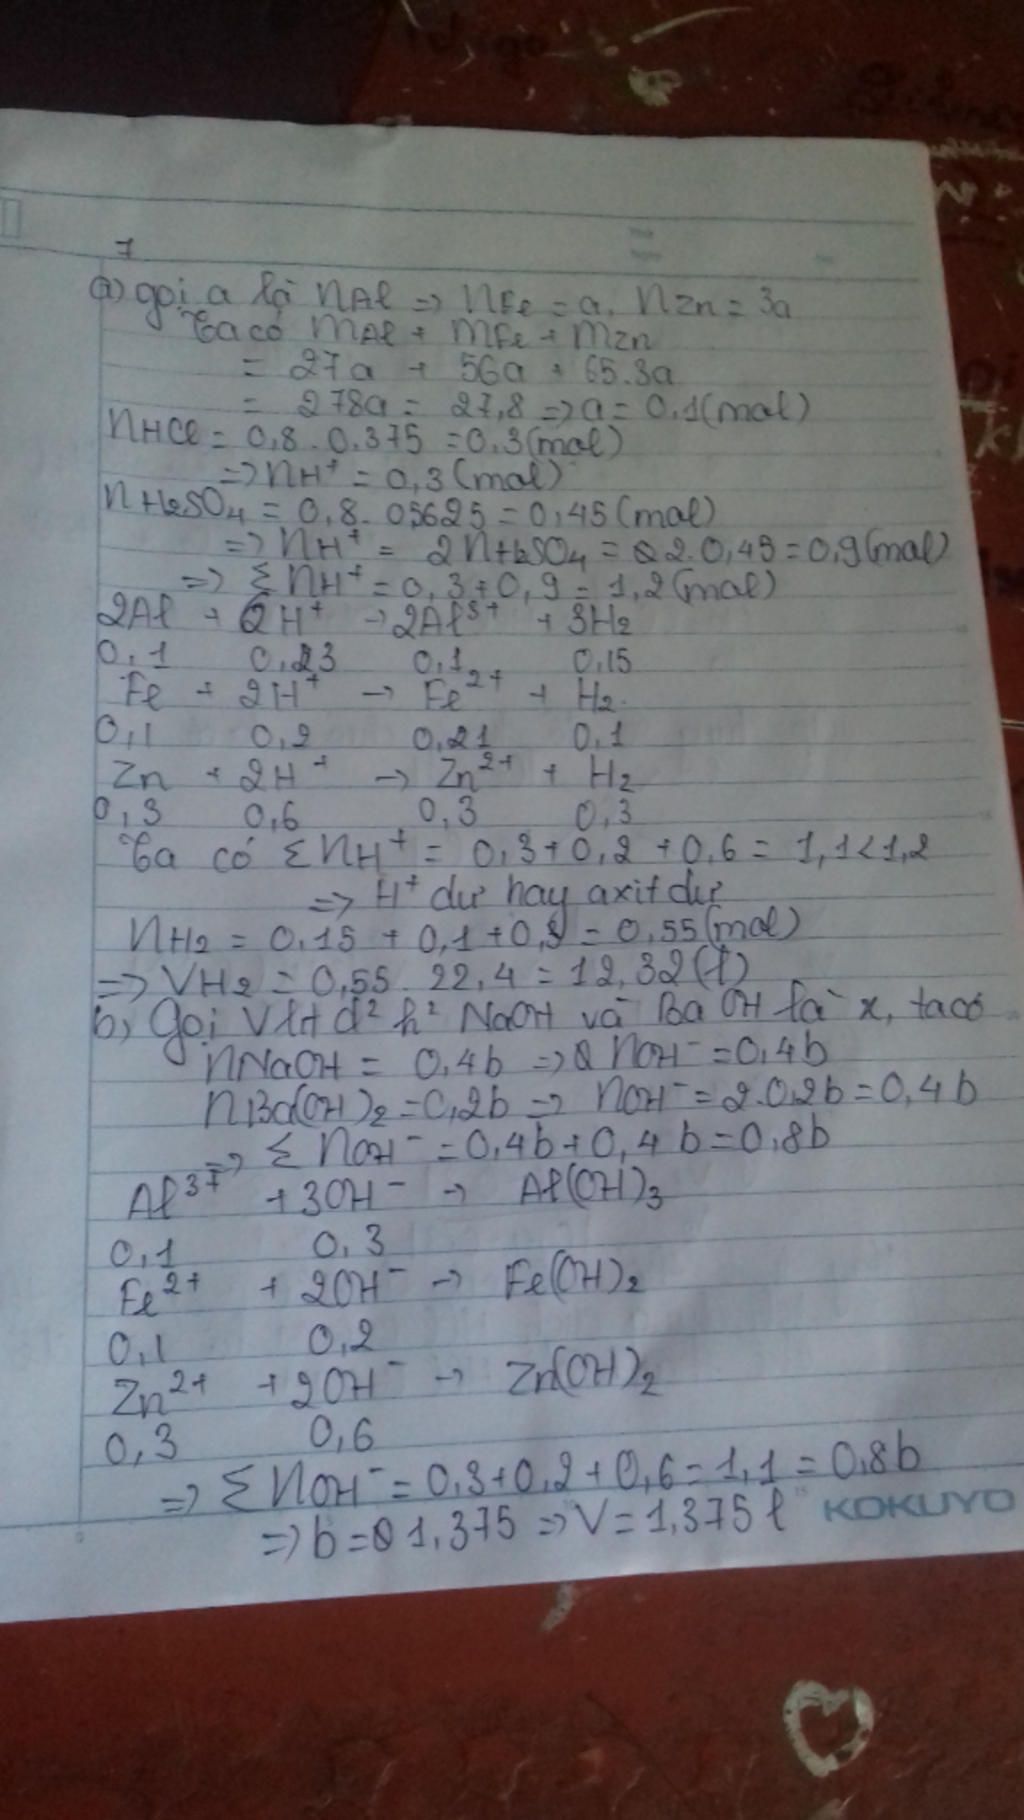 7
a) gọi a là nAl => nFe = a, nZn = 3a
Ta có mAl + mFe + mZn
= 27a + 56a + 65.3a
= 278a = 27,8 => a = 0,1(mol)
nHCl = 0,8 . 0,375 = 0,3(mol)
=> nH⁺ = 0,3(mol)
nH₂SO₄ = 0,8 . 05625 = 0,45(mol)
=> nH⁺ = 2nH₂SO₄ = 2.0,45 = 0,9(mol)
=> Σ nH⁺ = 0,3 + 0,9 = 1,2(mol)
2Al + 6H⁺ → 2Al³⁺ + 3H₂
0,1 0,3 0,1 0,15
Fe + 2H⁺ → Fe²⁺ + H₂
0,1 0,2 0,1 0,1
Zn + 2H⁺ → Zn²⁺ + H₂
0,3 0,6 0,3 0,3
Ta có Σ nH⁺ = 0,3 + 0,2 + 0,6 = 1,1 < 1,2
=> H⁺ dư hay axit dư
nH₂ = 0,15 + 0,1 + 0,3 = 0,55(mol)
=> VH₂ = 0,55 . 22,4 = 12,32(l)
b, Gọi V lít d² h² NaOH và Ba OH là x, ta có
nNaOH = 0,4b => nOH⁻ = 0,4b
nBa(OH)₂ = 0,2b => nOH⁻ = 2.0,2b = 0,4b
=> Σ nOH⁻ = 0,4b + 0,4b = 0,8b
Al³⁺ + 3OH⁻ → Al(OH)₃
0,1 0,3
Fe²⁺ + 2OH⁻ → Fe(OH)₂
0,1 0,2
Zn²⁺ + 2OH⁻ → Zn(OH)₂
0,3 0,6
=> Σ nOH⁻ = 0,3 + 0,2 + 0,6 = 1,1 = 0,8b
=> b = 1,375 => V = 1,375 l
KOKUYO